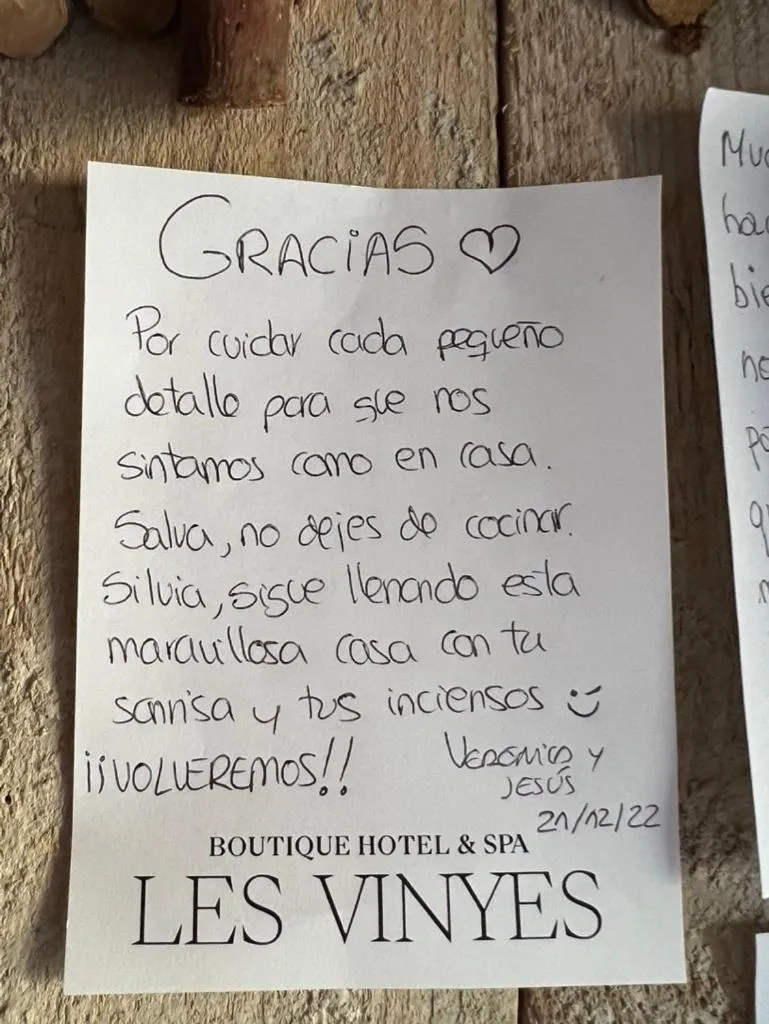 GRACIAS ♡
Por cuidar cada pequeño
detalle para que nos
sintamos como en casa.
Salva, no dejes de cocinar.
Silvia, sigue llenando esta
maravillosa casa con tu
sonrisa y tus inciensos :)
¡¡VOLVEREMOS!!
VERÓNICA Y
JESÚS
21/12/22
BOUTIQUE HOTEL & SPA
LES VINYES
Mu
ha
bie